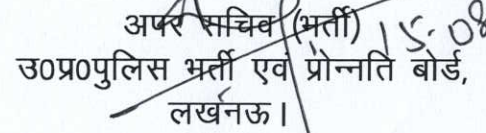 अपर सचिव (भर्ती) 15.08
उ०प्र०पुलिस भर्ती एवं प्रोन्नति बोर्ड,
लखनऊ।